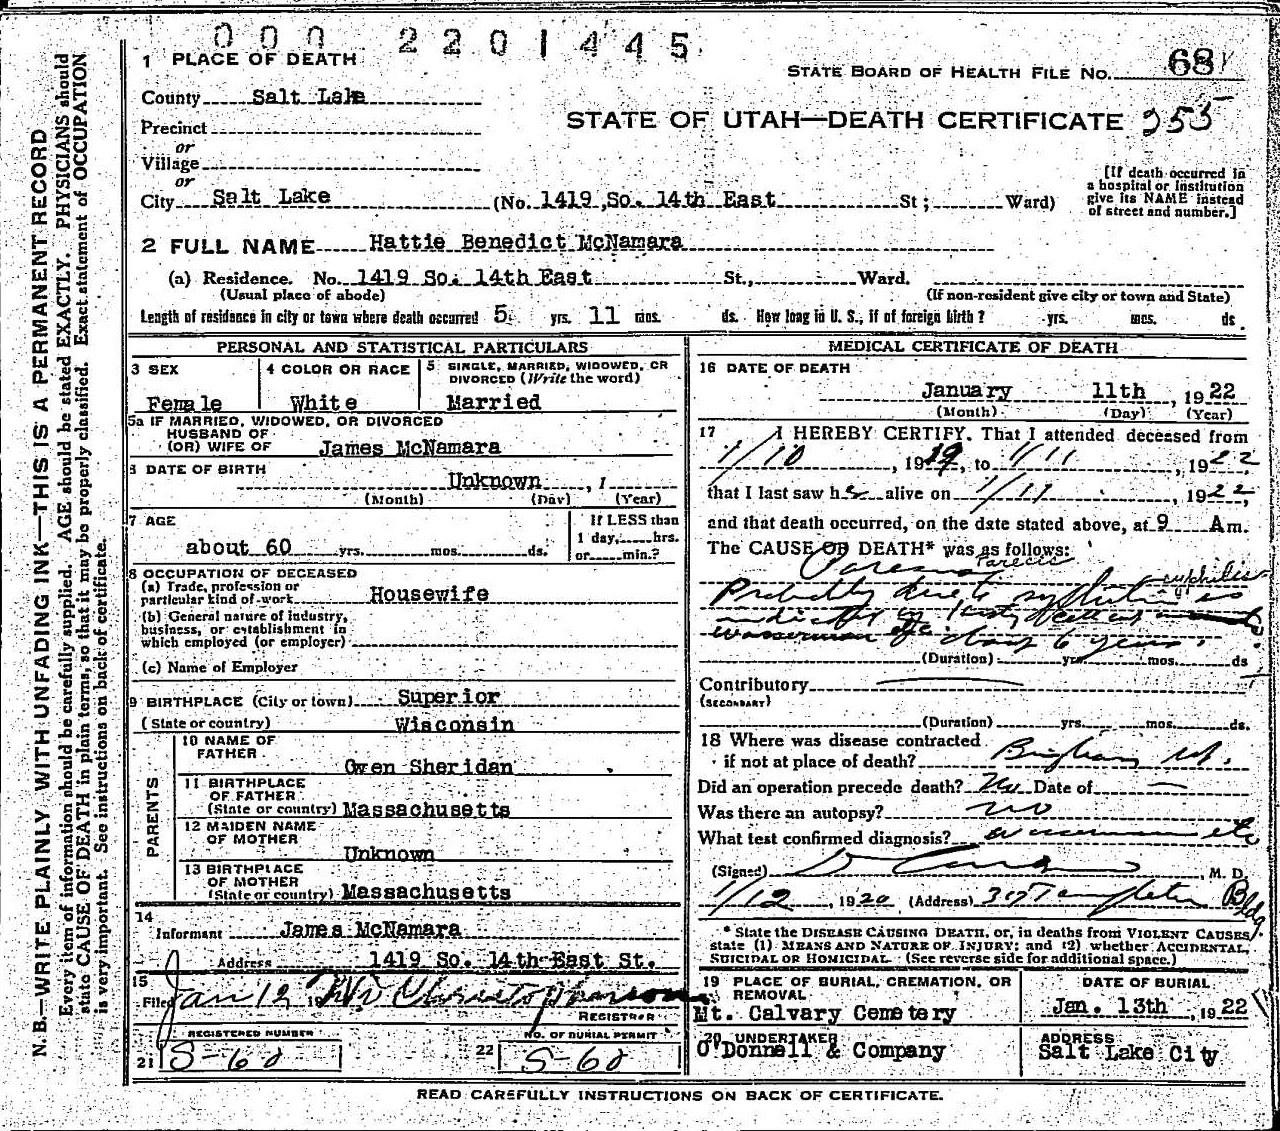 000 2201445
1 PLACE OF DEATH
STATE BOARD OF HEALTH FILE NO. 68
County Salt Lake
STATE OF UTAH—DEATH CERTIFICATE 255
Precinct
or
Village
or
[If death occurred in
a hospital or institution
give its NAME instead
of street and number.]
City Salt Lake (No. 1419 So. 14th East St; Ward)
2 FULL NAME Hattie Benedict McNamara
(a) Residence. No. 1419 So. 14th East St., Ward.
(Usual place of abode) (If non-resident give city or town and State)
Length of residence in city or town where death occurred 5 yrs. 11 mos. ds. How long in U. S., if of foreign birth? yrs. mos. ds.
PERSONAL AND STATISTICAL PARTICULARS
3 SEX
Female
4 COLOR OR RACE
White
5 SINGLE, MARRIED, WIDOWED, OR
DIVORCED (Write the word)
Married
5a IF MARRIED, WIDOWED, OR DIVORCED
HUSBAND OF
(OR) WIFE OF James McNamara
6 DATE OF BIRTH
Unknown , 1
(Month) (Day) (Year)
7 AGE
about 60 yrs. mos. ds.
If LESS than
1 day, hrs.
or min.?
8 OCCUPATION OF DECEASED
(a) Trade, profession or
particular kind of work Housewife
(b) General nature of industry,
business, or establishment in
which employed (or employer)
(c) Name of Employer
9 BIRTHPLACE (City or town) Superior
(State or country) Wisconsin
PARENTS
10 NAME OF
FATHER
Owen Sheridan
11 BIRTHPLACE
OF FATHER
(State or country) Massachusetts
12 MAIDEN NAME
OF MOTHER
Unknown
13 BIRTHPLACE
OF MOTHER
(State or country) Massachusetts
14
Informant James McNamara
Address 1419 So. 14th East St.
15
Filed Jan 12 19
REGISTRAR
REGISTERED NUMBER
21 S-60
NO. OF BURIAL PERMIT
22 S-60
MEDICAL CERTIFICATE OF DEATH
16 DATE OF DEATH
January 11th , 1922
(Month) (Day) (Year)
17 I HEREBY CERTIFY. That I attended deceased from
1/10 , 1919, to 1/11 , 1922
that I last saw her alive on 1/11 , 1922,
and that death occurred, on the date stated above, at 9 Am.
The CAUSE OF DEATH* was as follows:
Paresis Parecis
Probably due to syphilis
Wasserman etc. 6 years.
(Duration) yrs. mos. ds
Contributory
(SECONDARY)
(Duration) yrs. mos. ds.
18 Where was disease contracted
if not at place of death? Bingham Ut.
Did an operation precede death? No Date of —
Was there an autopsy? no
What test confirmed diagnosis? Wasserman etc
(Signed) , M. D.
1/12 , 1920 (Address) 307 Templeton Bldg
* State the DISEASE CAUSING DEATH, or, in deaths from VIOLENT CAUSES,
state (1) MEANS AND NATURE OF INJURY; and (2) whether ACCIDENTAL,
SUICIDAL OR HOMICIDAL. (See reverse side for additional space.)
19 PLACE OF BURIAL, CREMATION, OR
REMOVAL
Mt. Calvary Cemetery
DATE OF BURIAL
Jan. 13th , 1922
20 UNDERTAKER
O'Donnell & Company
ADDRESS
Salt Lake City
READ CAREFULLY INSTRUCTIONS ON BACK OF CERTIFICATE.
N. B.—WRITE PLAINLY, WITH UNFADING INK—THIS IS A PERMANENT RECORD
Every item of information should be carefully supplied. AGE should be stated EXACTLY. PHYSICIANS should
state CAUSE OF DEATH in plain terms, so that it may be properly classified. Exact statement of OCCUPATION
is very important. See instructions on back of certificate.